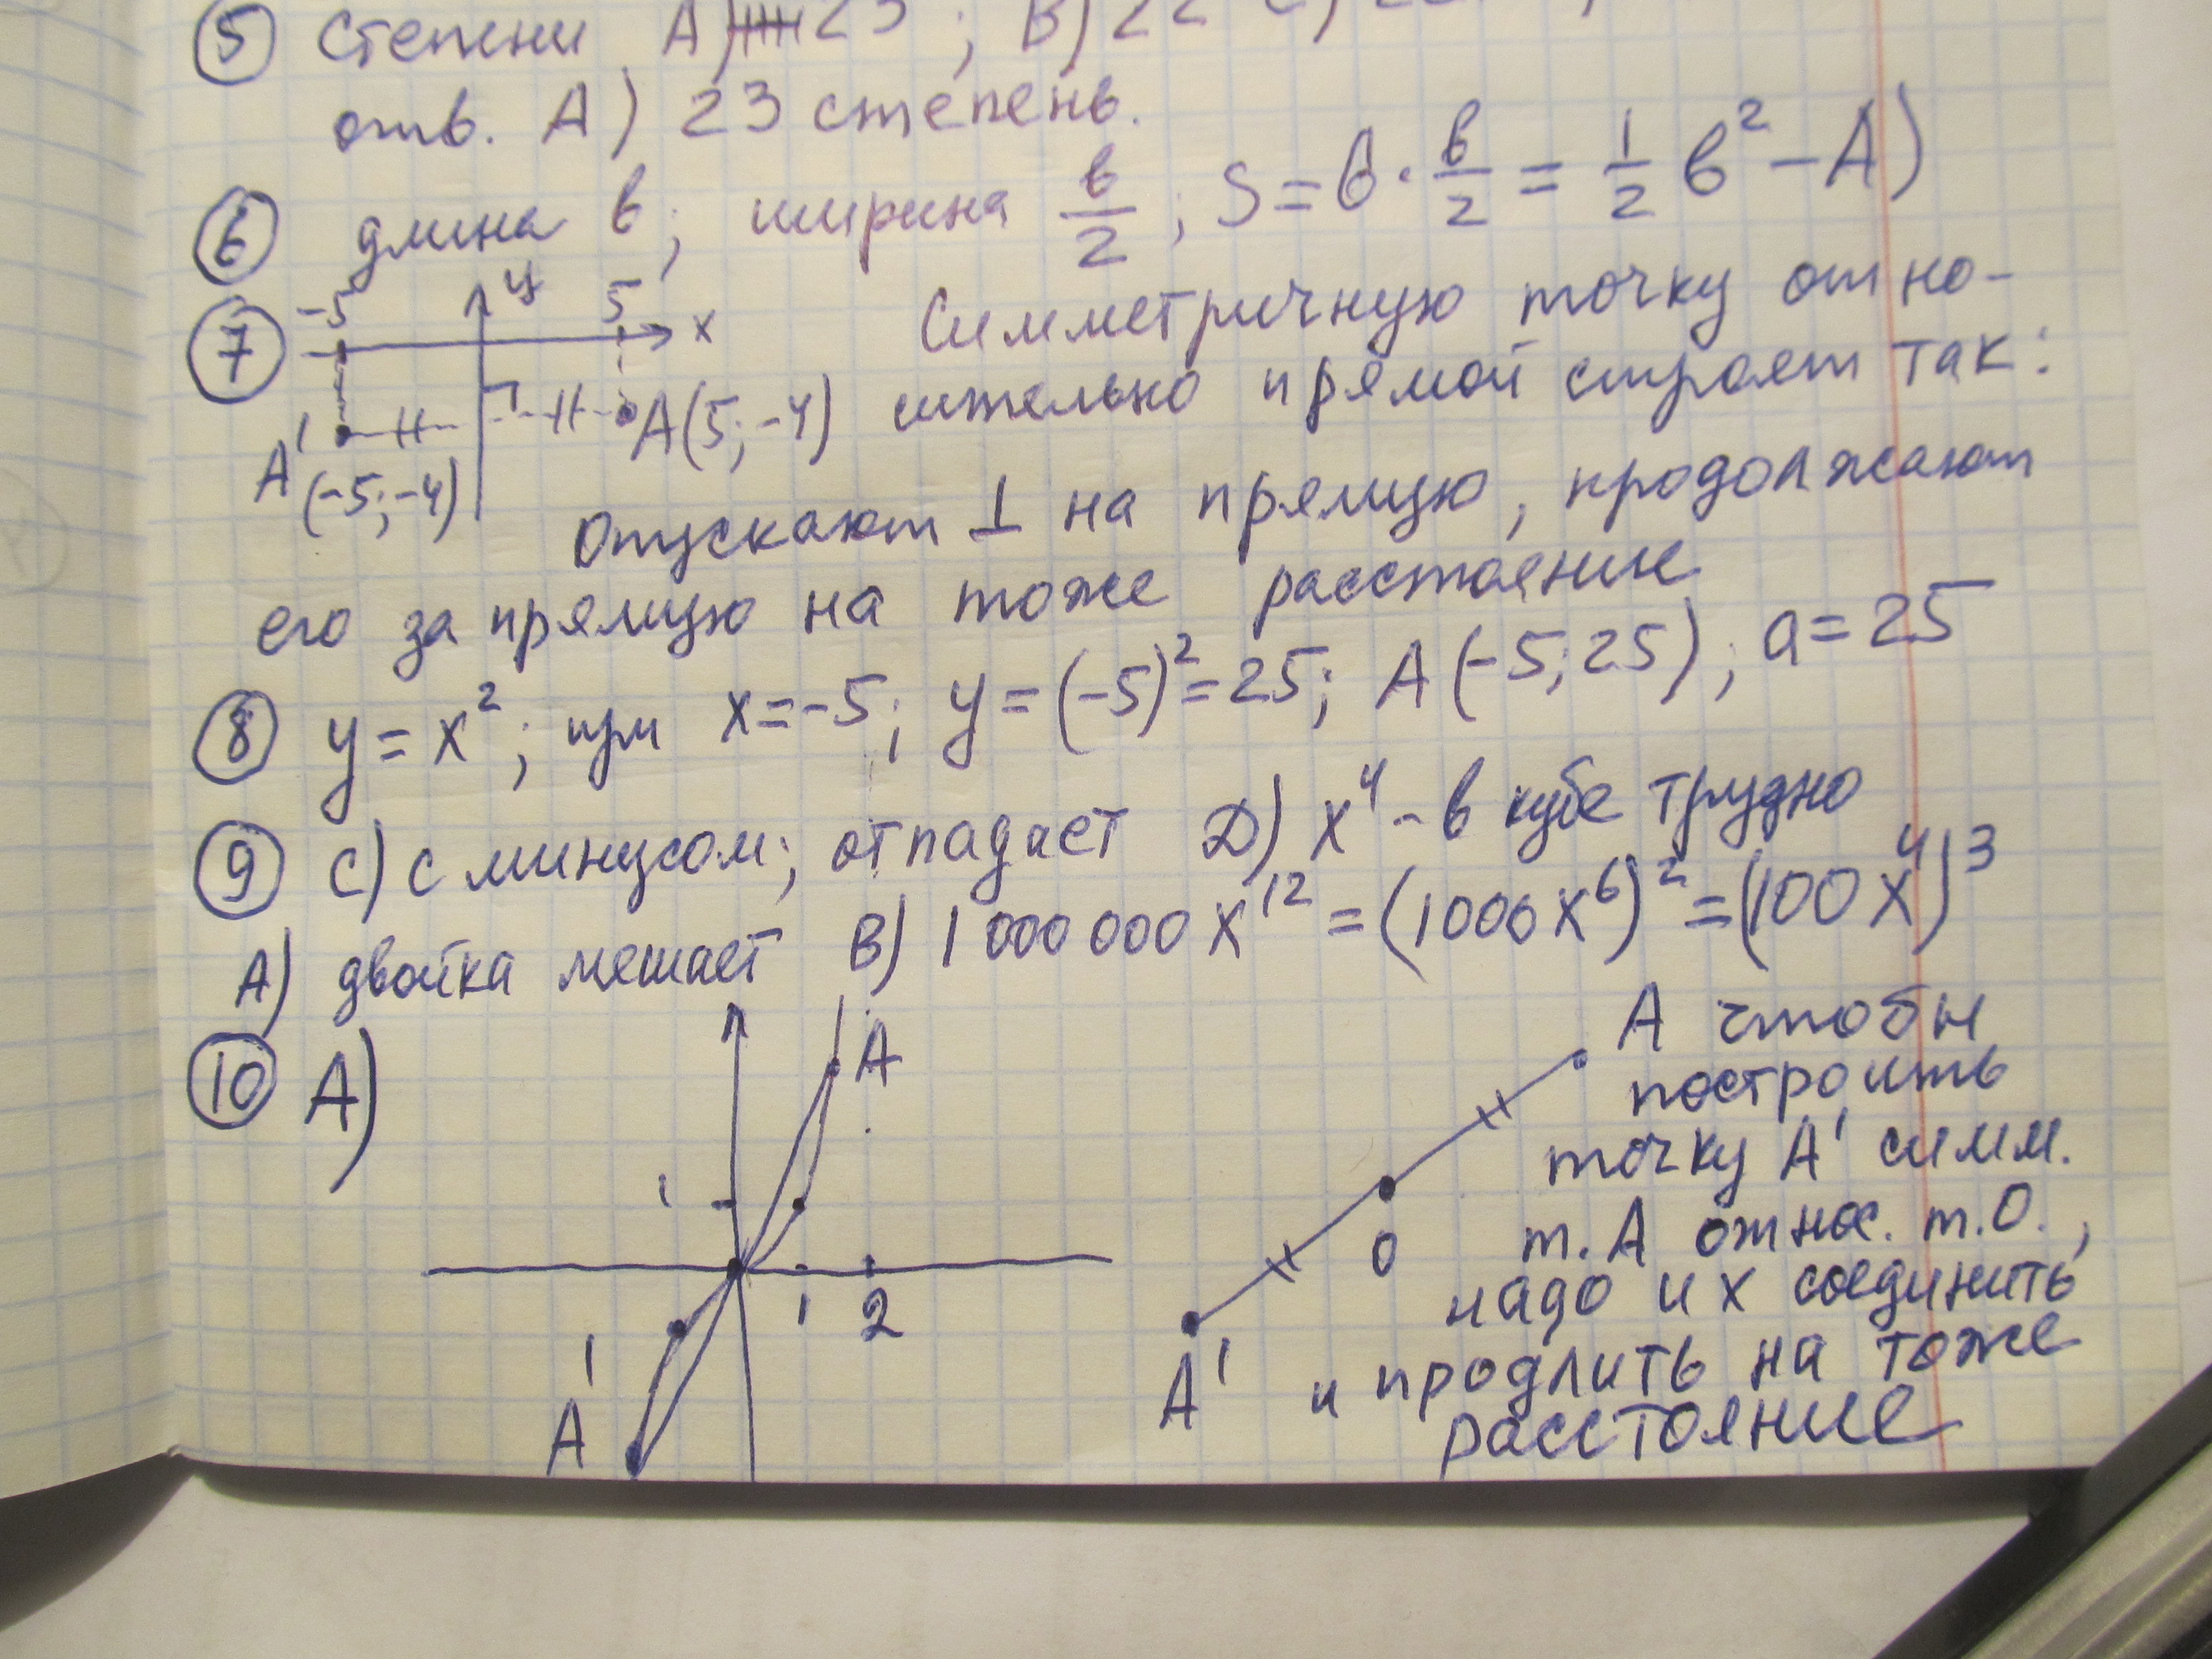 ⑤ Степени А) 23 ; В) 22 С)
отв. А) 23 степень.
⑥ длина в; ширина в/2 ; S = в · в/2 = 1/2 в² – А)
⑦ -5 у 5 х Симметричную точку отно-
А' (-5;-4) А(5;-4) сительно прямой строят так:
Опускают ⊥ на прямую, продолжают
его за прямую на тоже расстояние
⑧ у = х²; при х = -5; у = (-5)² = 25; А(-5;25); а = 25
⑨ С) с минусом; отпадает D) х⁴ – в кубе трудно
А) двойка мешает В) 1 000 000 х¹² = (1000х⁶)² = (100х⁴)³
⑩ А)
А
1
1 2
1
А'
А чтобы
построить
точку А' симм.
О т. А относ. т. О.,
надо их соединить
А' и продлить на тоже
расстояние